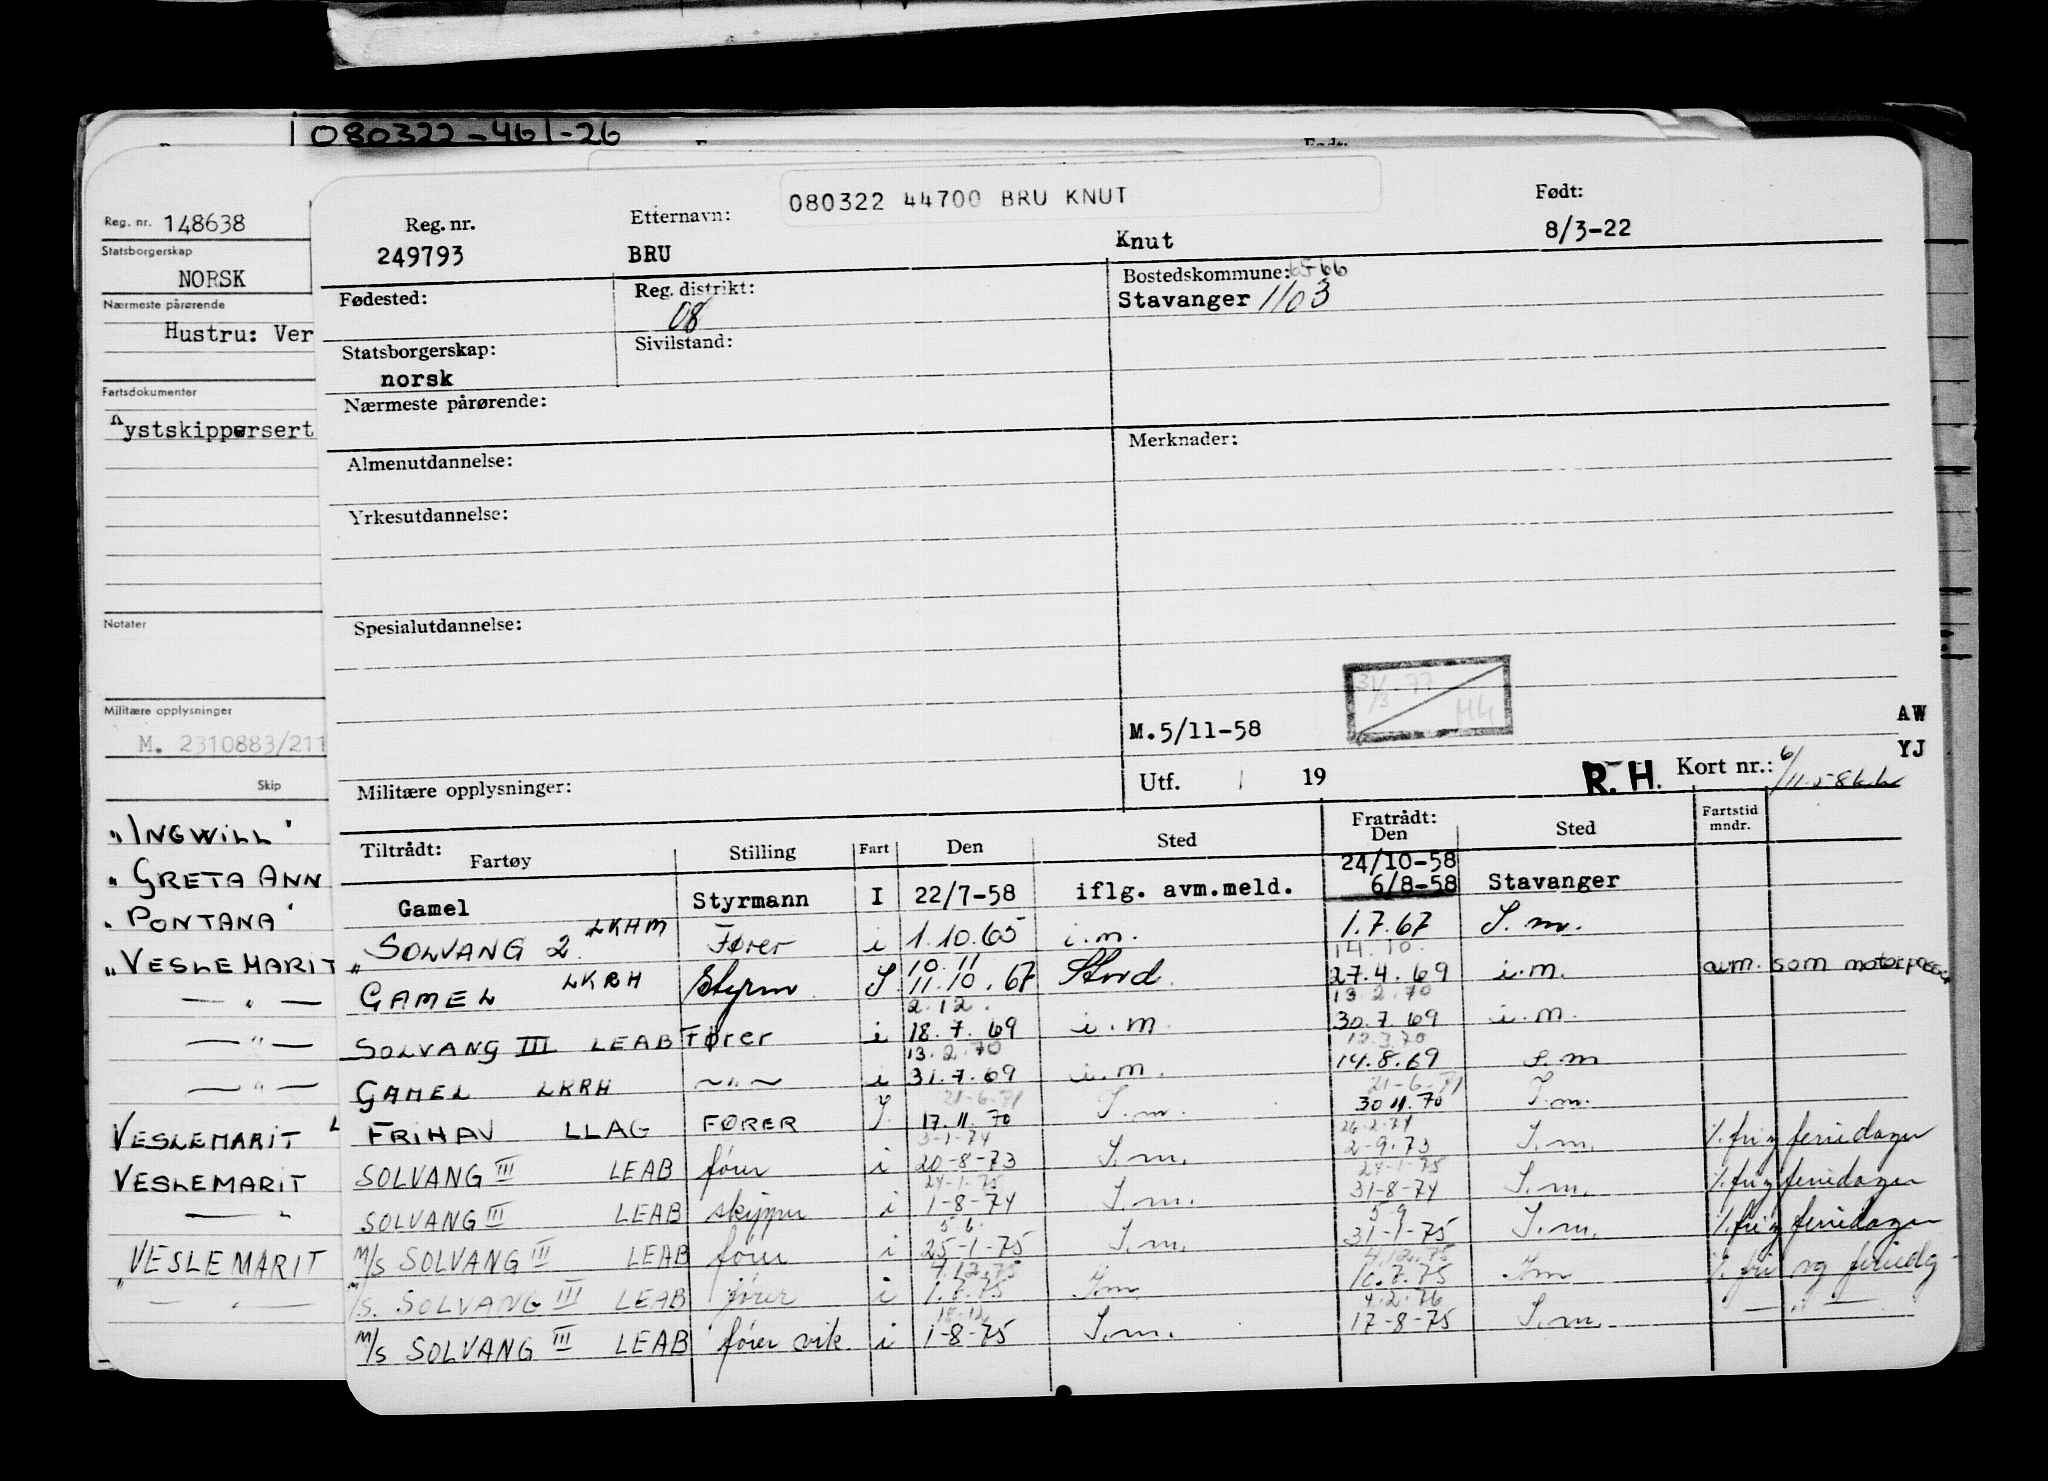 080322-461-26
Reg. nr. 148638
Statsborgerskap
NORSK
Nærmeste pårørende
Hustru: Ver
Fartsdokumenter
Kystskippersert
Notater
Militære opplysninger
M. 2310883/211
Skip
"INGWILL"
"GRETA ANN
"PONTANA"
"VESLEMARIT
— " —
— " —
— " —
VESLEMARIT L
VESLEMARIT
— "
"VESLEMARIT
— " —
080322 44700 BRU KNUT
Reg. nr. Etternavn: Født:
249793 BRU Knut 8/3-22
Fødested: Reg. distrikt: Bostedskommune:
08 Stavanger 1103
Statsborgerskap: Sivilstand:
norsk
Nærmeste pårørende:
Almenutdannelse: Merknader:
Yrkesutdannelse:
Spesialutdannelse:
31/3 77
M.5/11-58 AW
YJ
Militære opplysninger: Utf. 19 R. H. Kort nr.: 6/11-58
Tiltrådt: Fartøy Stilling Fart Den Sted Fratrådt: Den Sted Fartstid mndr.
24/10-58
Gamel Styrmann I 22/7-58 iflg. avm.meld. 6/8-58 Stavanger
"SOLVANG 2 LKHM Fører i 1.10.65 i.m. 1.7.67 S.m.
10.11 14.10.
GAMEL LKRH Styrm S 11.10.67 Stord. 27.4.69 i.m. avm. som motorpasser
2.12. 13.2.70
SOLVANG III LEAB Fører i 18.7.69 i.m 30.7.69 i.m.
13.2.70 12.3.70
GAMEL LKRH ~"~ i 31.7.69 i.m. 14.8.69 s.m
21-6-71 21-6-71
FRIHAV LLAG FØRER S. 17.11.70 S.m. 30 11.70 S.m.
3-1-74 26-2-74
SOLVANG III LEAB fører i 20-8-73 S.m. 2-9-73 S.m. %. fri og feriedager
24-1-75 24-1-75
SOLVANG III LEAB skipper i 1-8-74 S.m. 31-8-74 S.m. %. fri og feriedager
5.6. 5.9
M/S SOLVANG III LEAB fører i 25-1-75 S.m. 31-1-75 S.m. %. fri og feriedager
4.12.75 4.12.75
M/S. SOLVANG III LEAB fører i 1.7.75 S.m. 10.7.75 S.m %. fri og feriedg
4.2.76 — " —
M/S SOLVANG III LEAB fører vik. i 1-8-75 S.m. 17-8-75 S.m.